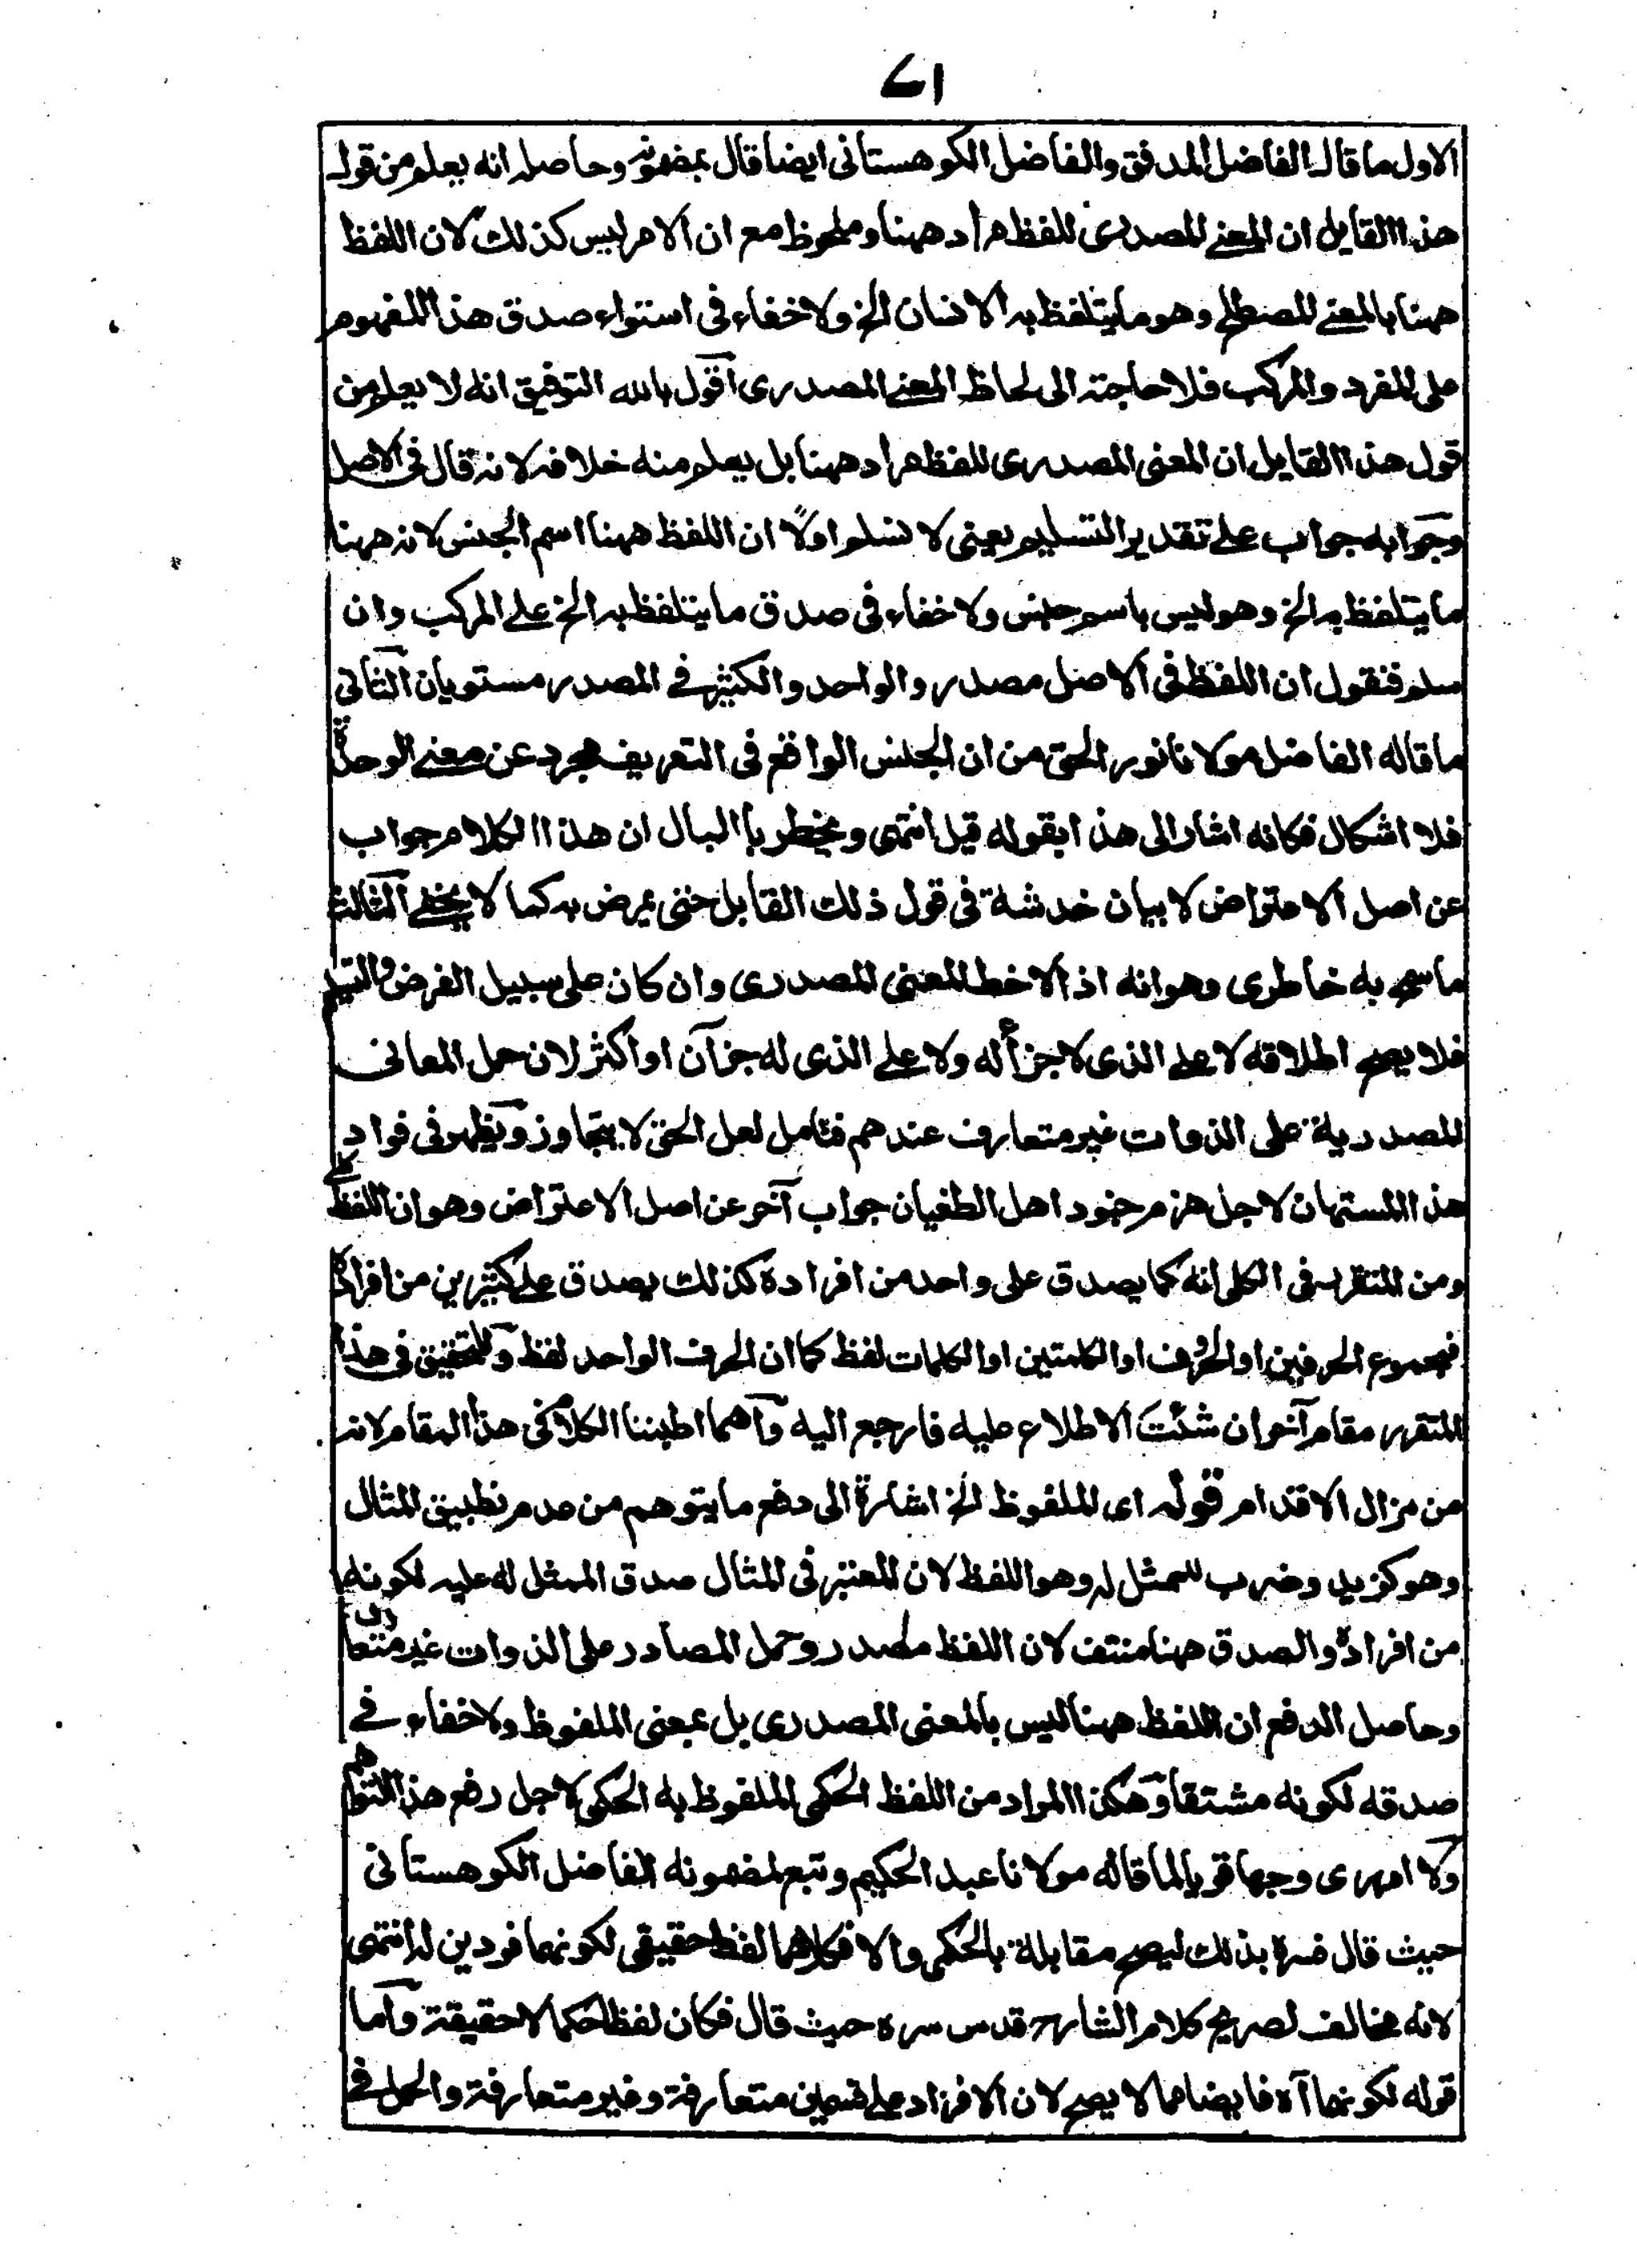 ٧١
الاول ما قالہ الفاضل المدقق والفاضل الكوهستانى ايضا قال بمضمونہ وحاصلہ انه يعلم من قول
هذا القايل ان المعنے المصدرى للفظ مراد ههنا وملحوظ مع ان الامر ليس كذلك لان اللفظ
ههنا بالمعنے المصطلح وهو ما يتلفظ بہ الانسان الخ ولا خفاء فى استواء صدق هذا المفهوم
على المفرد والمركب فلا حاجتہ الى لحاظ المعنے المصدرى اقول بالله التوفيق انه لا يعلم من
قول هذا القايل ان المعنى المصدرى للفظ مراد ههنا بل يعلم منه خلافہ لانہ قال فى الاصل
وجوابه جواب علے تقدير التسليم يعنى لا نسلم اولًا ان اللفظ ههنا اسم الجنس لانہ ههنا
ما يتلفظ بہ الخ وهو ليس باسم جنس ولا خفاء فى صدق ما يتلفظ بہ الخ علے المركب وان
سلم فنقول ان اللفظ فى الاصل مصدر والواحد والكثير فے المصدر مستويان الثانى
ما قاله الفاضل مولانا نور الحق من ان الجنس الواقع فى التعريف مجرد عن معنے الوحدة
فلا اشكال فكانه اشار الى هذا بقوله قيل انتهى ويخطر بالبال ان هذا الكلام جواب
عن اصل الاعتراض لا بيان خدشة فى قول ذلك القايل حتى يمرض بہ كما لا يخفے الثالث
ما سمح به خاطرى وهو انه اذا لاحظ المعنى المصدرى وان كان على سبيل الفرض والتسليم
فلا يصح اطلاقه لا علے الذى لا جزأ له ولا علے الذى له جزآن او اكثر لان حمل المعانى
المصدرية على الذوات غير متعارف عندهم فتامل لعل الحق لا يتجاوز ويظهر فى فواد
هذا المستهان لاجل هزم جنود اهل الطغيان جواب آخر عن اصل الاعتراض وهو ان اللفظ كلے
ومن المتقرر فى الكلى انه كما يصدق على واحد من افراده كذلك يصدق علے كثيرين من افراده
فمجموع الحرفين او الحروف او الكلمتين او الكلمات لفظ كما ان الحرف الواحد لفظ وللتحقيق فى هذا
المتقرر مقام آخر ان شئت الاطلاع عليه فارجع اليه وانما اطنبنا الكلام فى هذا المقام لانہ
من مزال الاقدام قولہ اى الملفوظ الخ اشارة الى دفع ما يتوهم من عدم تطبيق المثال
وهو كزيد وضرب للممثل لہ وهو اللفظ لان المعتبر فى المثال صدق الممثل له عليہ لكونه
من افراده والصدق ههنا منتف لان اللفظ مصدر وحمل المصادر على الذوات غير متعارف
وحاصل الدفع ان اللفظ ههنا ليس بالمعنى المصدرى بل بمعنى الملفوظ ولا خفاء فے
صدقه لكونه مشتقا وهكذا المراد من اللفظ الحكمى الملفوظ به الحكمى لاجل رفع هذا التوهم
ولا ارى وجها قويا لما قاله مولانا عبد الحكيم وتبع لمضمونه الفاضل الكوهستانى
حيث قال فسره بذلك ليصح مقابلة بالحكمى والا فكلاهما لفظ حقيقى لكونهما فردين لہ انتهى
لانه مخالف لصريح كلام الشارح قدس سره حيث قال فكان لفظا حكما لا حقيقة واما
قوله لكونهما آه فايضا مما لا يصح لان الافراد علے قسمين متعارفة وغير متعارفة والحمل فے